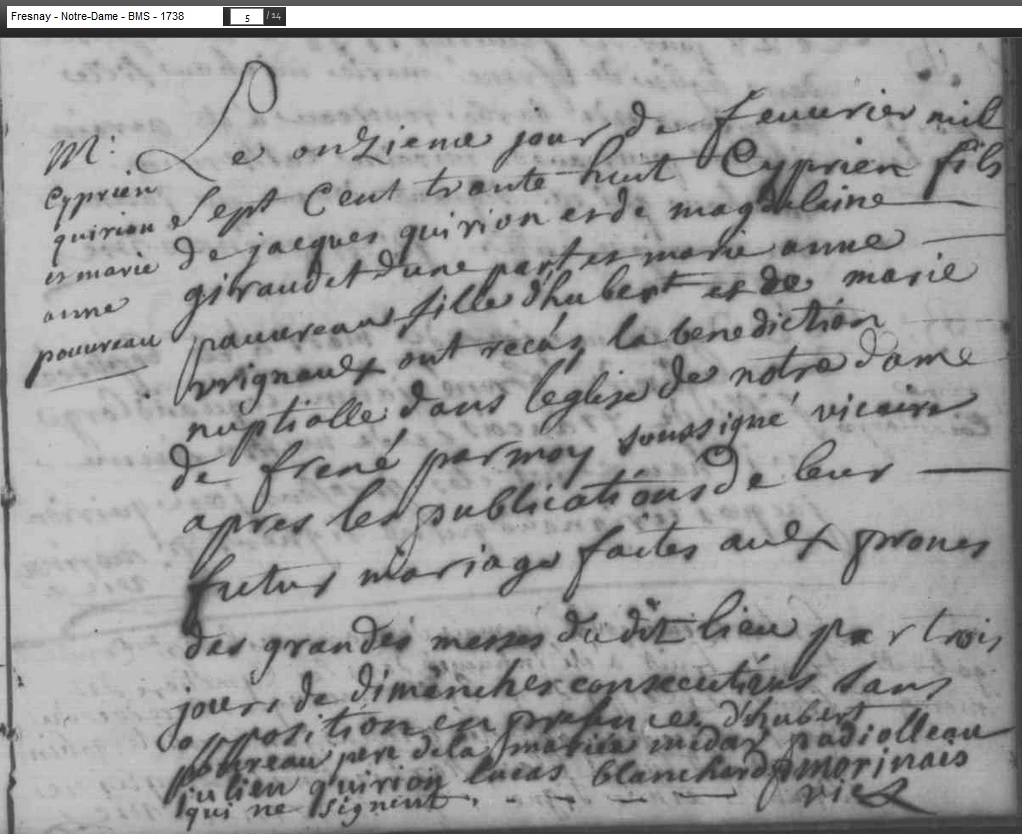 Fresnay - Notre-Dame - BMS - 1738
5 / 14
M:
Cyprien
quirion
et marie
anne
pouvreau
Le onzieme jour de feuvrier mil
Sept Cent trante huit Cyprien fils
de jacques quirion et de magdelaine
giraudet dune part et marie anne
pauvreau fille d'hubert et de marie
vrignault ont recus la benediction
nuptialle dans leglise de notre dame
de frené par moy soussigné vicaire
apres les publications de leur
futur mariage faites aux prones
des grandes messes du dit lieu par trois
jours de dimanches consecutives sans
opposition en presence d'hubert
pouvreau pere de la mariée padiolleau
julien quirion lucas blanchard morinais
qui ne signent. vic